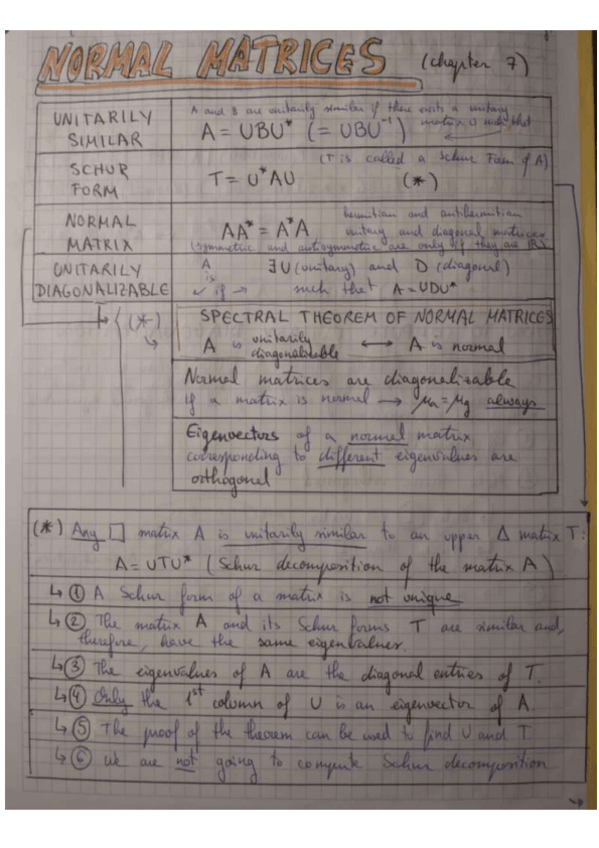 NORMAL MATRICES (chapter 7)
UNITARILY SIMILAR
A and B are unitarily similar if there exists a unitary matrix U such that
A = UBU* (= UBU⁻¹)
SCHUR FORM
(T is called a Schur Form of A)
T = U*AU (*)
NORMAL MATRIX
AA* = A*A
hermitian and antihermitian
unitary and diagonal matrices
(symmetric and antisymmetric are only if they are ℝ)
UNITARILY DIAGONALIZABLE
A is
✓ if →
∃U (unitary) and D (diagonal)
such that A = UDU*
(*)
SPECTRAL THEOREM OF NORMAL MATRICES
A is unitarily diagonalizable ⟷ A is normal
Normal matrices are diagonalizable
if a matrix is normal → μa = μg always
Eigenvectors of a normal matrix
corresponding to different eigenvalues are
orthogonal
(*) Any □ matrix A is unitarily similar to an upper Δ matrix T:
A = UTU* (Schur decomposition of the matrix A)
↳ ① A Schur form of a matrix is not unique
↳ ② The matrix A and its Schur forms T are similar and,
therefore, have the same eigenvalues.
↳ ③ The eigenvalues of A are the diagonal entries of T.
↳ ④ Only the 1st column of U is an eigenvector of A.
↳ ⑤ The proof of the theorem can be used to find U and T
↳ ⑥ We are not going to compute Schur decomposition